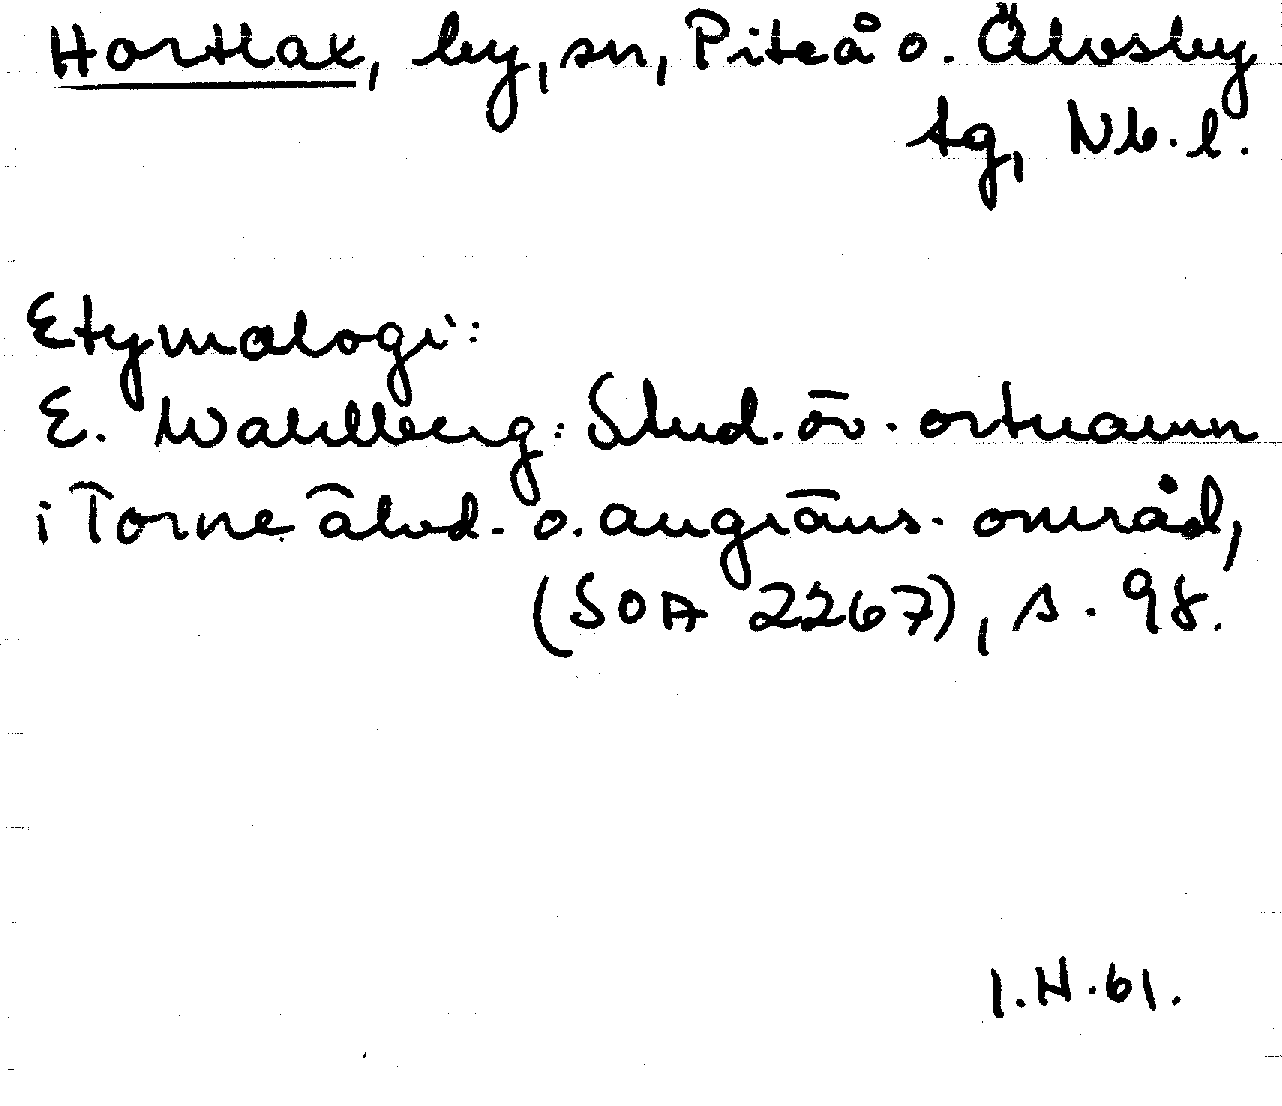 Hortlax, by, sn, Piteå o. Älvsby
tg, Nb. l.
Etymologi:
E. Wahlberg: Stud. öv. ortnamn
i Torne älvd. o. angräns. områd,
(SOA 2267), s. 98.
I.H.61.